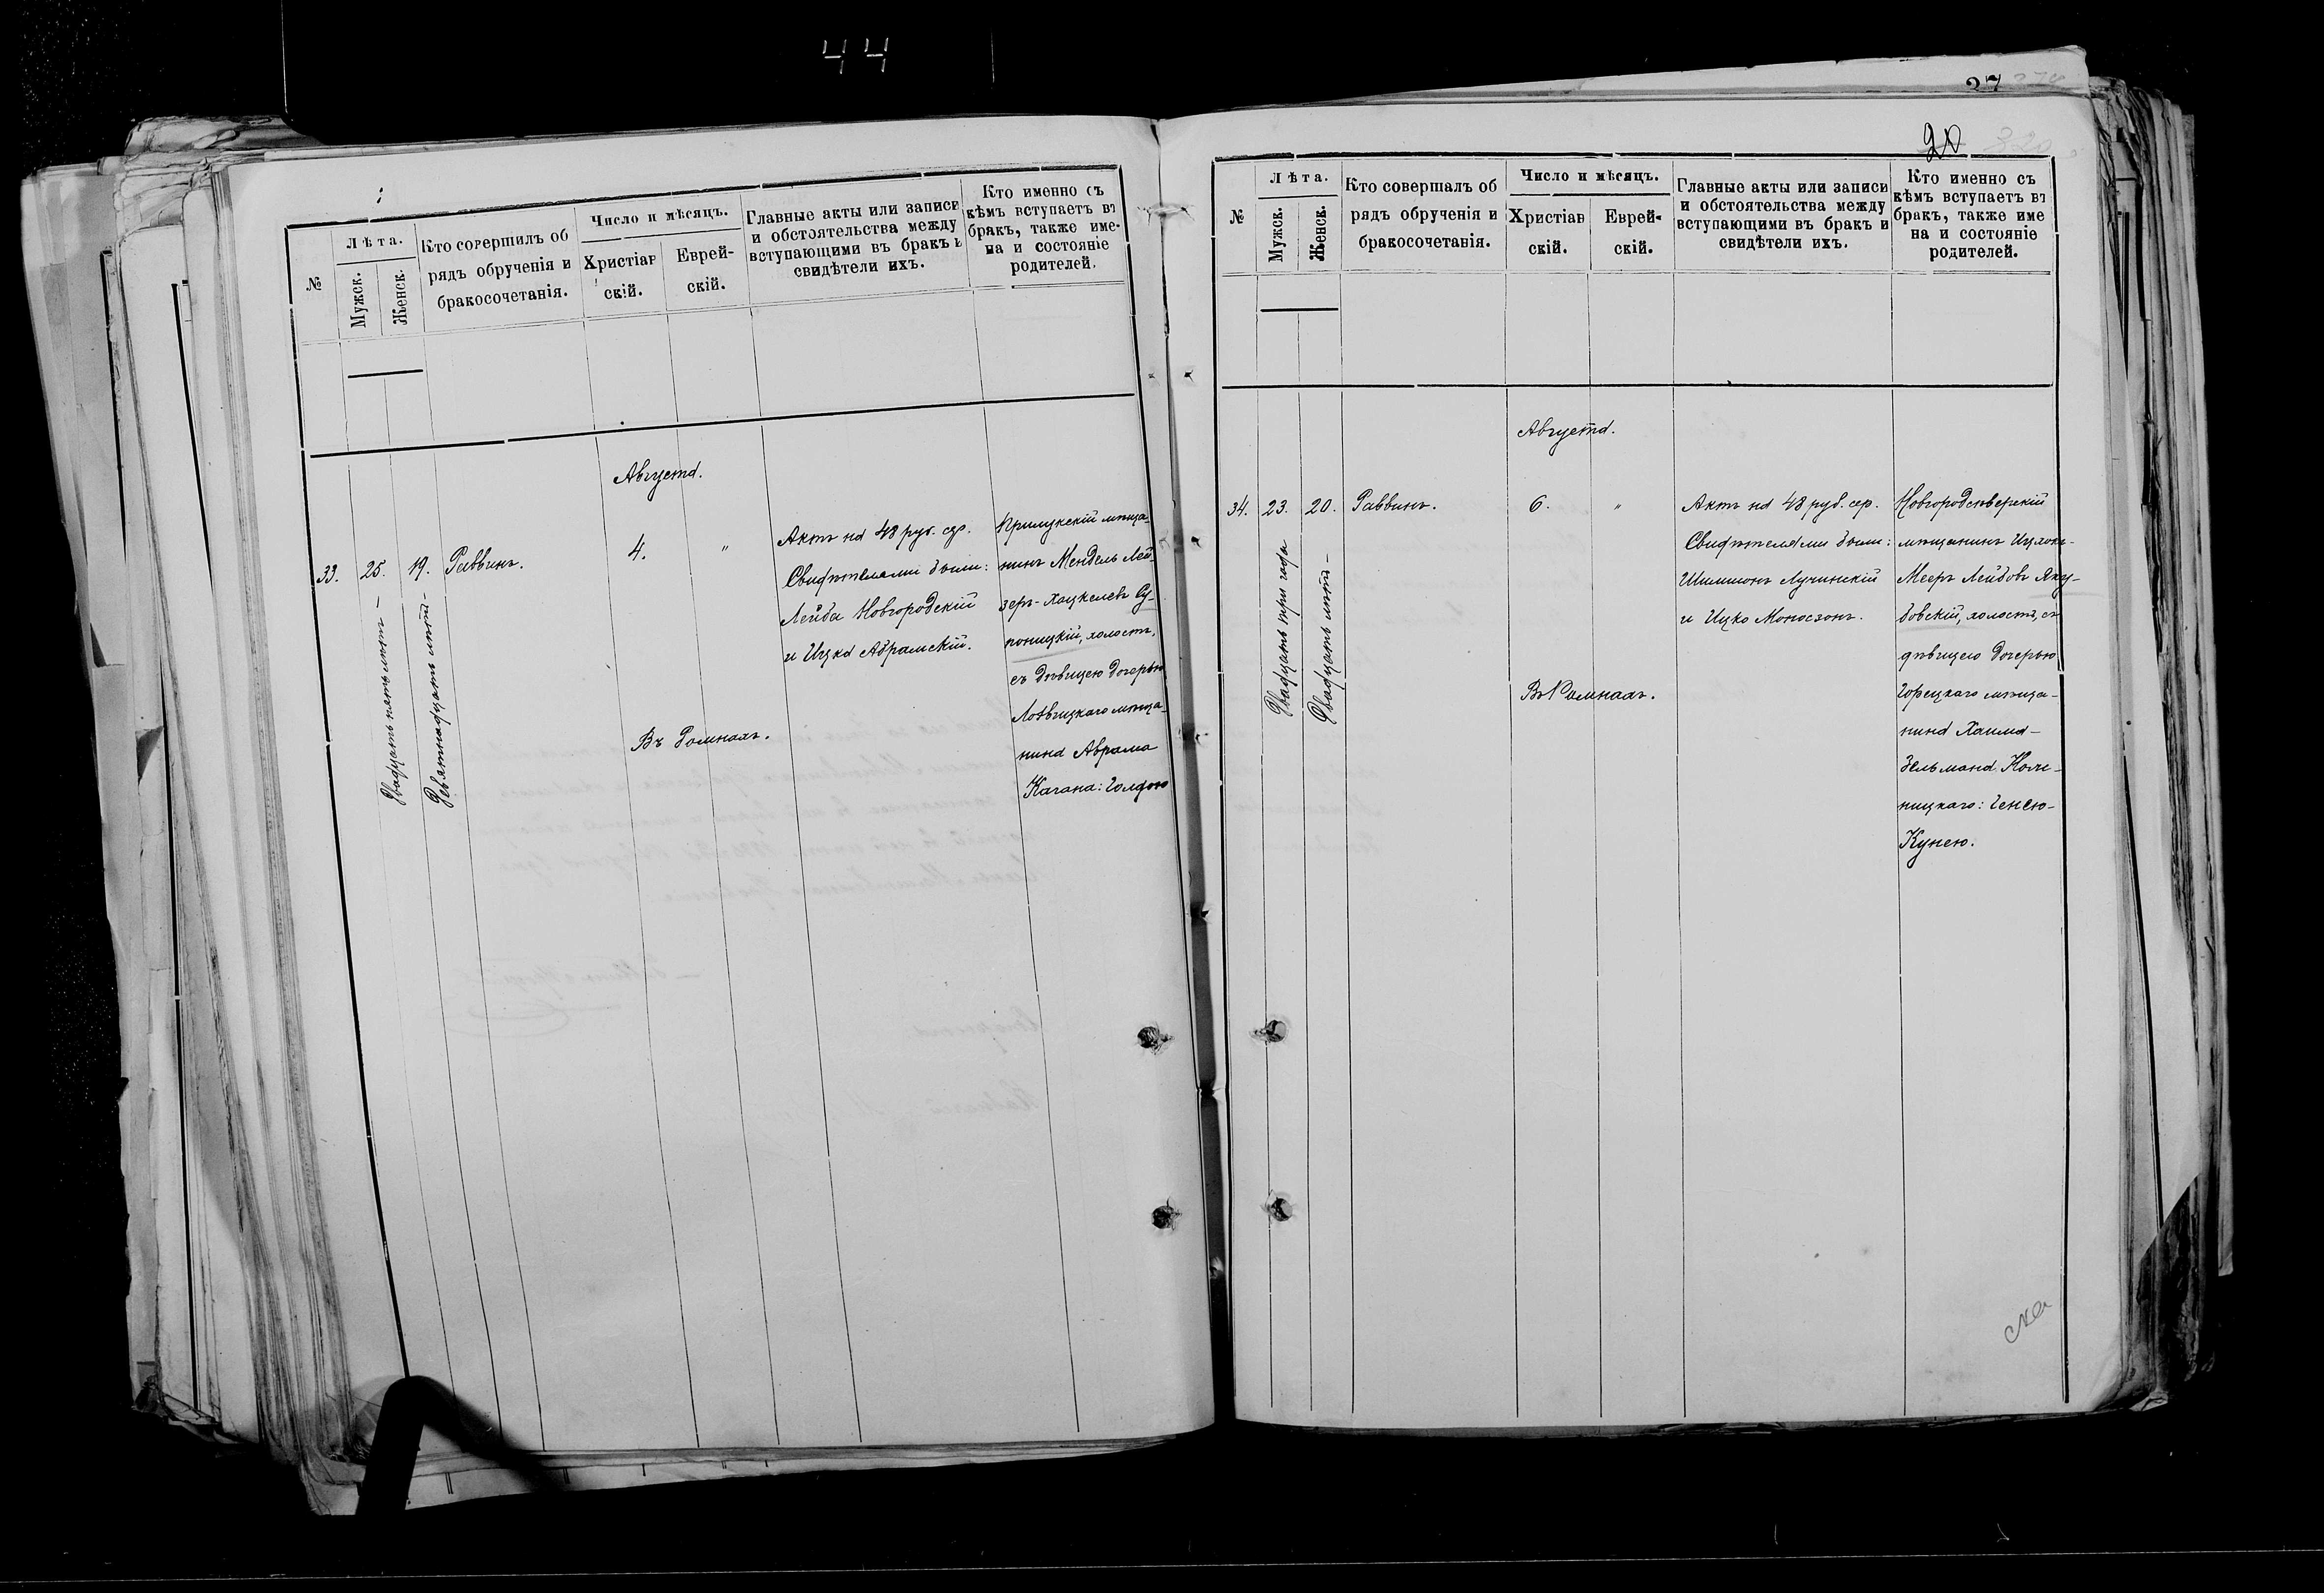 44
№
Лѣта.
Мужск.
Женск.
Кто совершилъ об
рядъ обрученія и
бракосочетанія.
Число и мѣсяцъ.
Христіан
скій.
Еврей-
скій.
Главные акты или записи
и обстоятельства между
вступающими въ бракъ и
свидѣтели ихъ.
Кто именно съ
кѣмъ вступаетъ въ
бракъ, также име-
на и состояніе
родителей.
Августа.
33.
25.
Двадцать пять лѣтъ —
19.
Девятнадцать лѣтъ —
Раввинъ.
4.
"
Въ Ромнахъ.
Актъ на 48 руб. сер.
Свидѣтелями были:
Лейба Новгородскій
и Ицка Абрамскій.
Прилукскій мѣща-
нинъ Мендель Лей-
зеръ-Хацкелевъ Су-
поницкій, холостъ,
съ дѣвицею дочерью
мѣща-
нина Абрама
Кагана: Голдою
20
320
27
№
Лѣта.
Мужск.
Женск.
Кто совершалъ об
рядъ обрученія и
бракосочетанія.
Число и мѣсяцъ.
Христіан
скій.
Еврей-
скій.
Главные акты или записи
и обстоятельства между
вступающими въ бракъ и
свидѣтели ихъ.
Кто именно съ
кѣмъ вступаетъ въ
бракъ, также име
на и состояніе
родителей.
Августа.
34.
23.
Двадцать три года
20.
Двадцать лѣтъ —
Раввинъ.
6.
"
Въ Ромнахъ.
Актъ на 48 руб. сер.
Свидѣтелями были:
Шимшонъ Лучинскій
и Ицко Моносзонъ.
Новгородсѣверскій
мѣщанинъ Ицхокъ-
Мееръ Лейбовъ Яку-
бовскій, холостъ, съ
дѣвицею дочерью
Горецкаго мѣща-
нина Хаима-
Зельмана
ницкаго: Генею-
Кунею.